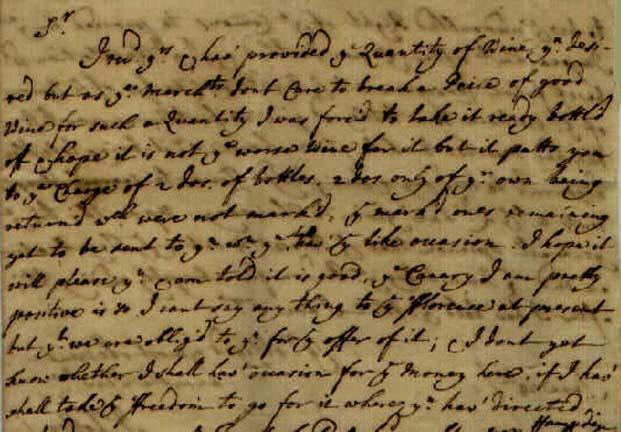 Sr
I recd yrs & hav' provided ye Quantity of Wine yu desi-
red but as ye Marchts dont Care to break a Peice of good
Wine for such a Quantity I was forc'd to take it ready bottld
off & hope it is not ye worse Wine for it but it putts you
to ye Charge of 2 dos. of bottles. 2 dos only of yr own being
returnd wch were not mark'd, ye mark'd ones remaining
yet to be sent to yu wn yu hav' ye like occasion. I hope it
will please yu & am told it is good, ye Canary I am pretty
positive is so I cant say any thing to ye fflorence at present
but yt we are oblig'd to yu for ye offer of it; & I dont yet
know whether I shall hav' occasion for ye Money here. if I hav'
shall take ye ffreedom to go for it where yu hav' directed